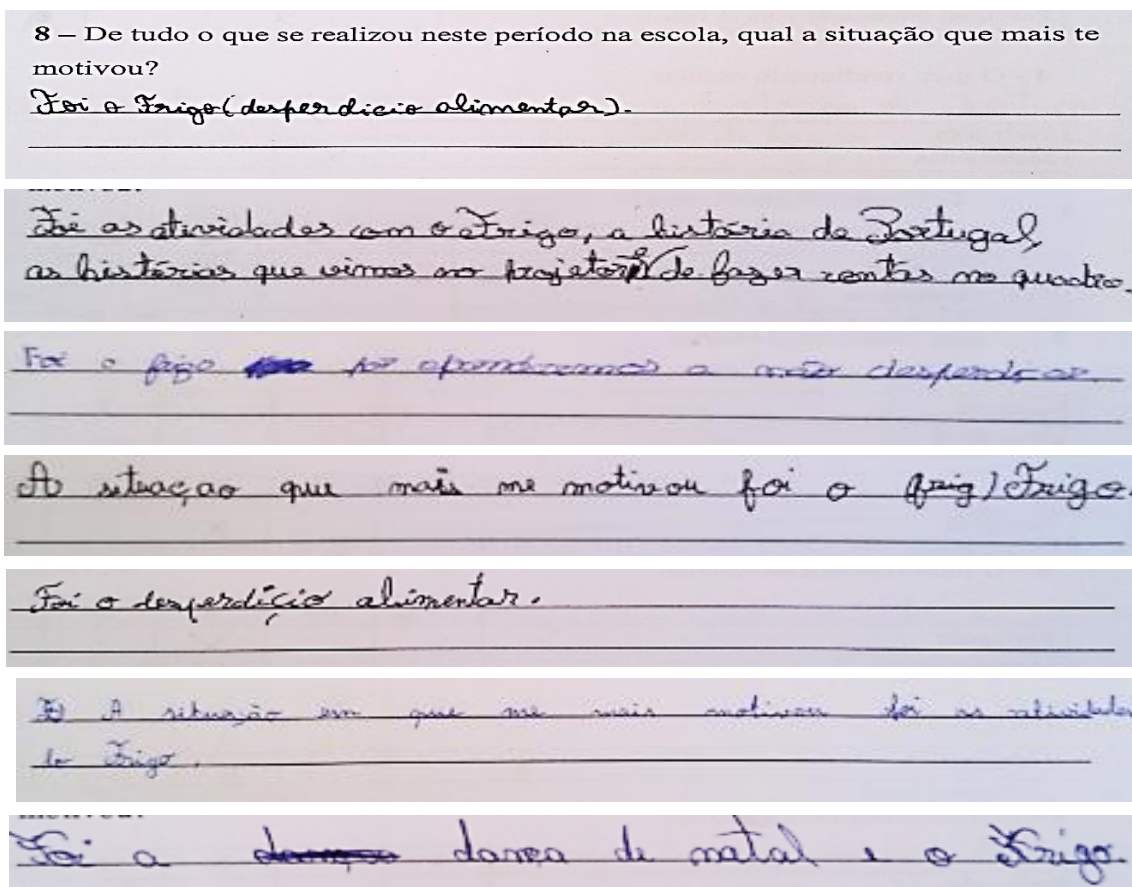 8 – De tudo o que se realizou neste período na escola, qual a situação que mais te
motivou?
Foi o Frigo (desperdicio alimentar).
Foi as atividades com o Frigo, a história de Portugal,
as histórias que vimos no projetor e de fazer contas no quadro.
Foi o frigo aprendermos a não desperdiçar.
A situaçao que mais me motivou foi o (frig) Frigo.
Foi o desperdíçio alimentar.
A situação em que me mais motivou foi as atividades
do Frigo.
Foi a dança de natal e o Frigo.